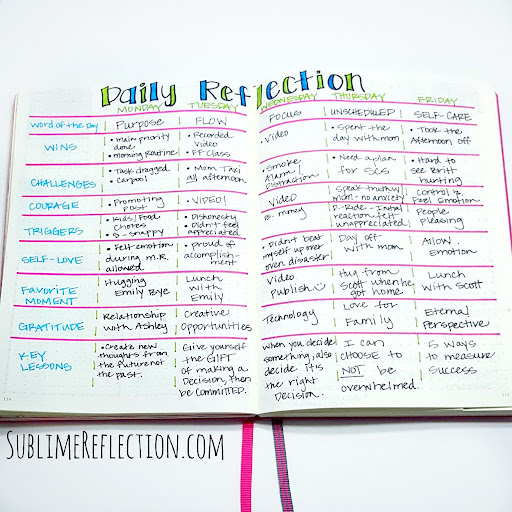 Daily Reflection
MONDAY TUESDAY WEDNESDAY THURSDAY FRIDAY
Word of the Day Purpose FLOW FOCUS UNSCHEDULED SELF-CARE
WINS • main priority • Recorded • Video • Spent the • Took the
done Video day with mom Afternoon off
• Morning Routine! • FF Class
CHALLENGES • Task dragged • Mom Taxi • Smoke • Need a plan • Hard to
• Carpool all afternoon Alarm for SCS see Britt
Distraction hurting
COURAGE • Promoting • VIDEO! Video Speak truth w/ Control &
post mom - no anxiety Feel Emotion
TRIGGERS • Kids/Food • Dishonesty • money D.-Ride - Initial People
Chores • Didn't feel reaction felt pleasing
• S - snappy appreciated unappreciated
SELF-LOVE • Felt emotion • proud of • Didn't beat Day off Allow
during m.R. accomplish- myself up over with mom Emotion
allowed ment oven disaster
FAVORITE Hugging Lunch Video Hug from Lunch
MOMENT Emily Bye with Publish Scott when he with Scott
Emily got home
GRATITUDE Relationship Creative Technology Love for Eternal
with Ashley Opportunities Family Perspective
KEY • Create new Give yourself When you decide I can 5 ways
LESSONS thoughts from the GIFT something, also CHOOSE to to measure
the future not of making a decide it's NOT be success
the past. Decision, then the right overwhelmed.
be COMMITTED. Decision.
SublimeReflection.com